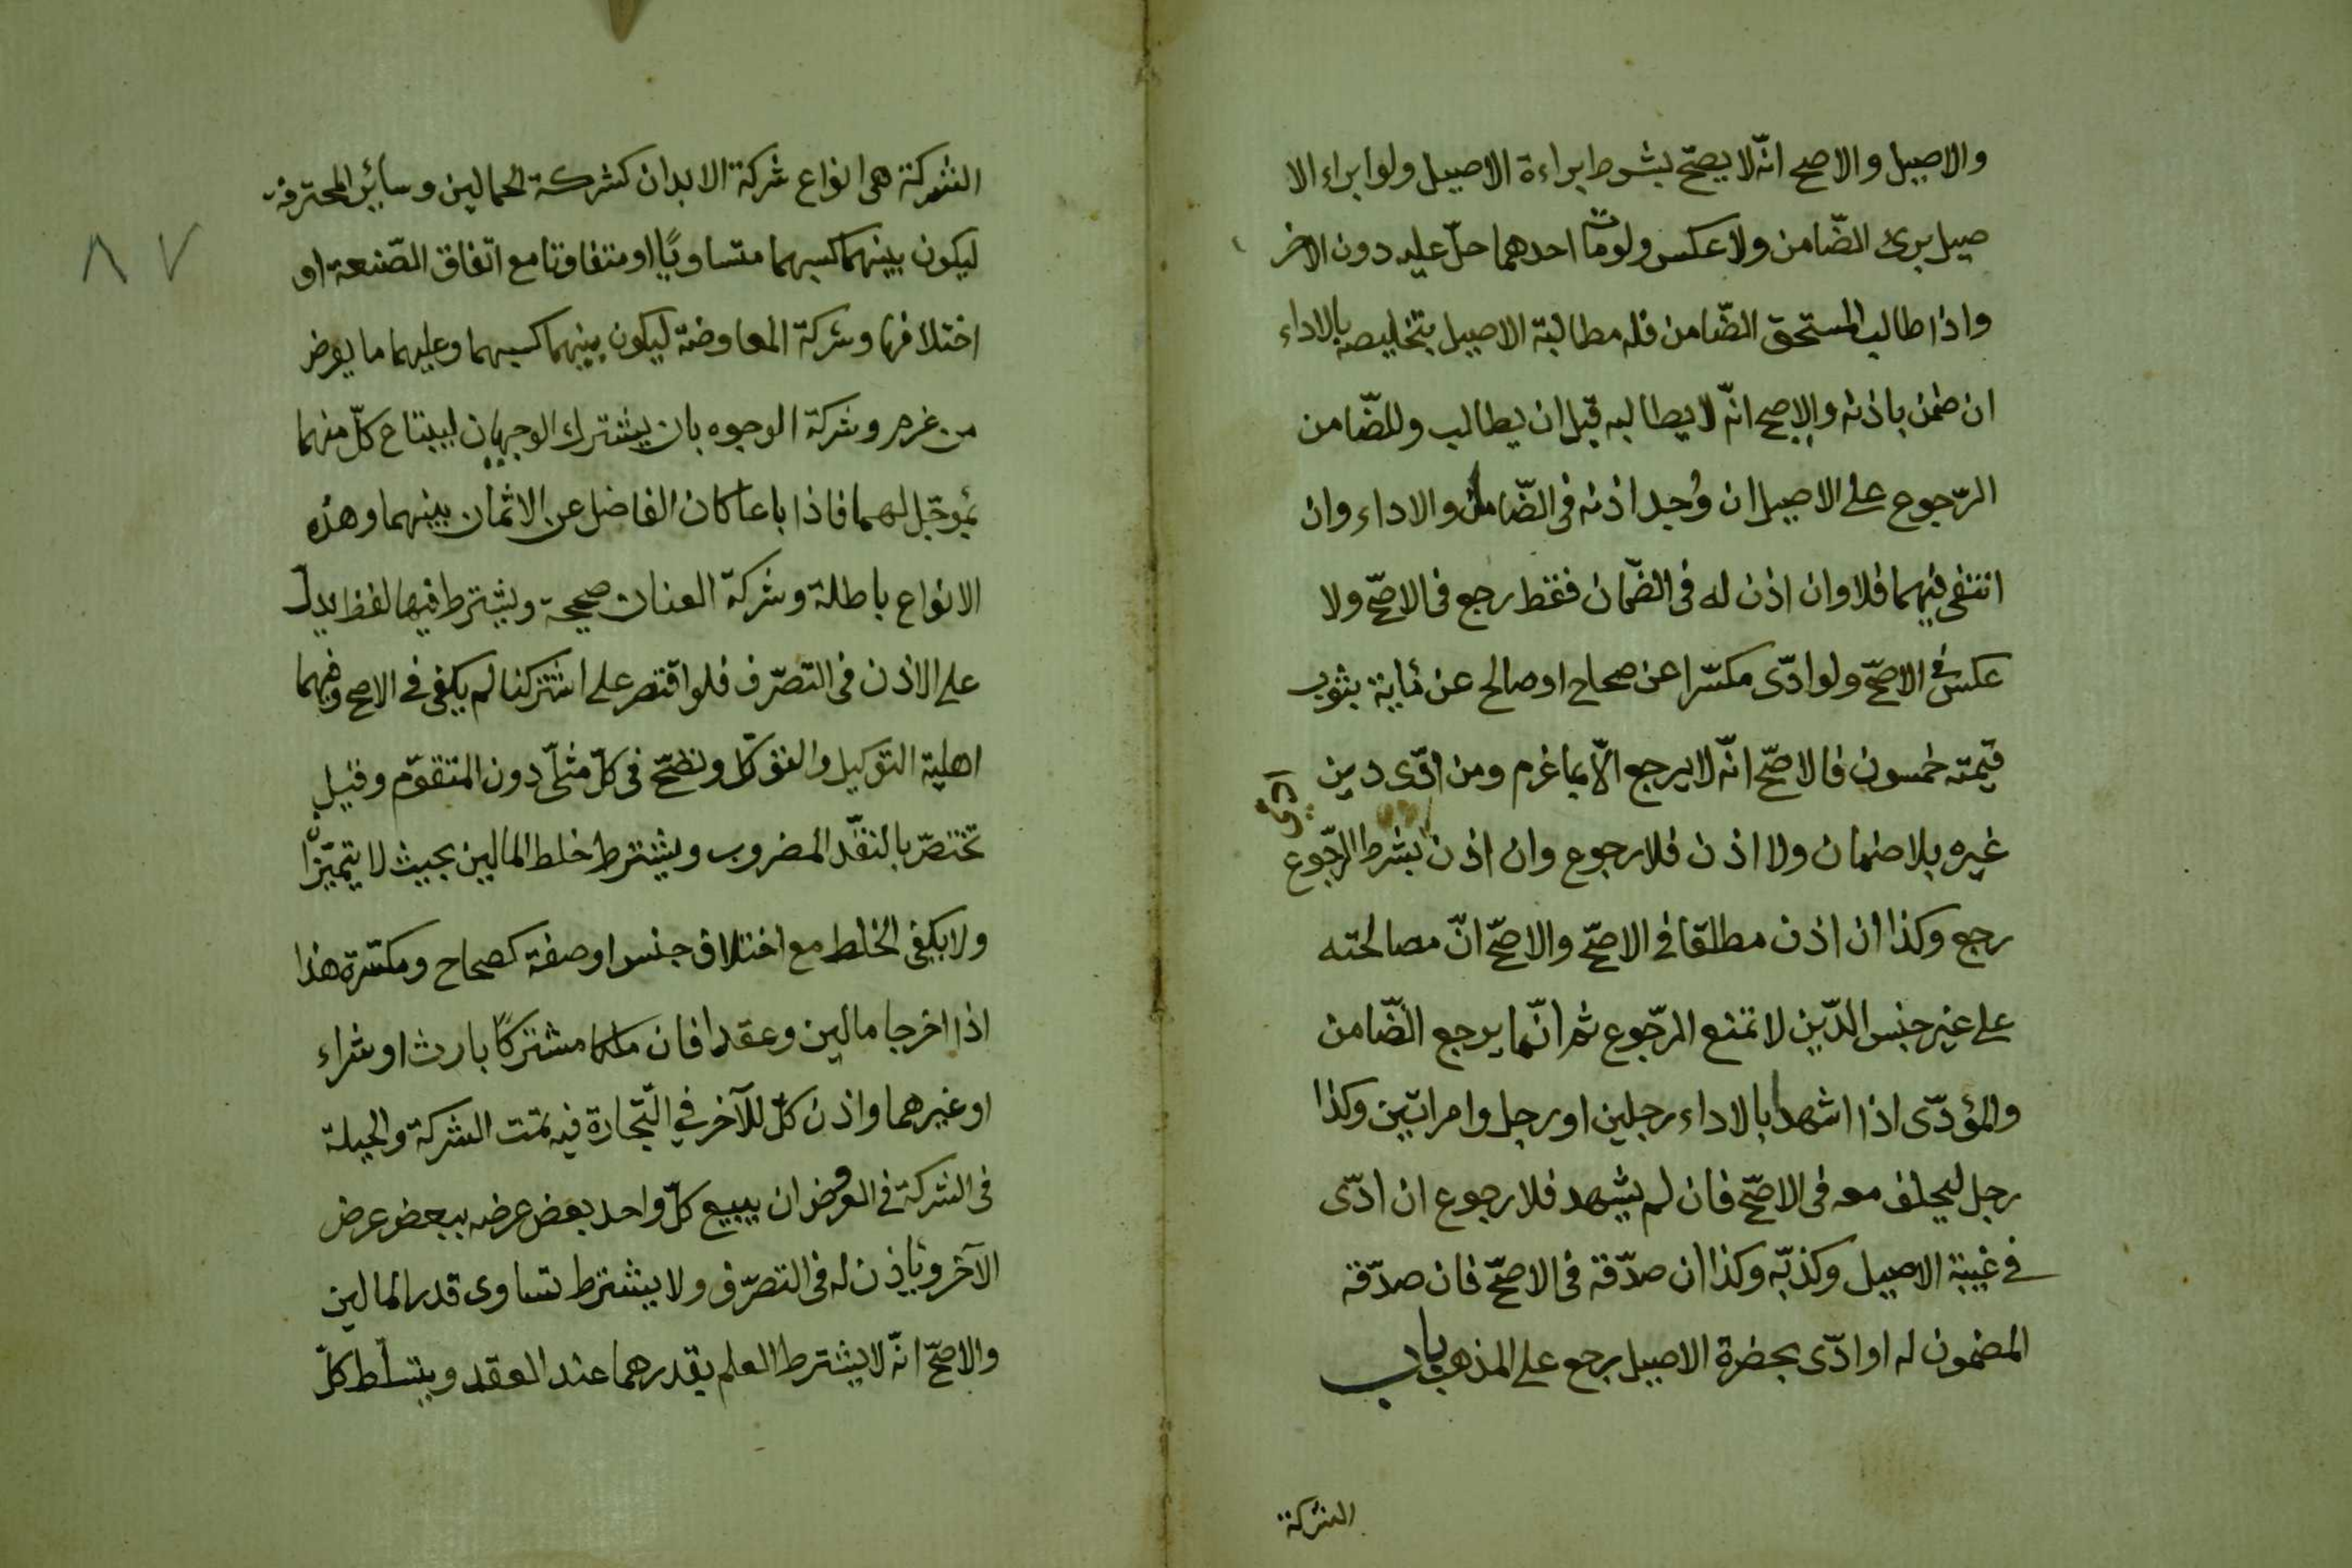 والاصيل والاصح انّه لا يصحّ بشرط ابراءة الاصيل ولو ابراء الا
صيل برئ الضّامن ولا عكس ولو مات احدهما حلّ عليه دون الاخر
واذا طالب المستحق الضّامن فله مطالبة الاصيل بتخليصه بالاداء
ان ضمن باذنه والاصح انّه لا يطالبه قبل ان يطالب وللضّامن
الرّجوع على الاصيل ان وُجد اذنه فى الضّامن والاداء وان
انتفى فيهما فلا وان اذن له فى الضّمان فقط رجع فى الاصحّ ولا
عكس فى الاصحّ ولو ادّى مكسّرا عن صحاح او صالح عن مأية بثوب
قيمته خمسون فالاصحّ انّه لا يرجع الّا بما غرم ومن ادّى دين
غيره بلا ضمان ولا اذن فلا رجوع وان اذن بشرط الرّجوع
رجع وكذا ان اذن مطلقا فى الاصحّ والاصحّ انّ مصالحته
على غير جنس الدّين لا تمنع الرّجوع ثم انّما يرجع الضّامن
والمؤدّى اذا اشهدا بالاداء رجلين او رجل وامراتين وكذا
رجل ليحلف معه فى الاصحّ فان لم يشهد فلا رجوع ان ادّى
فى غيبة الاصيل وكذبّه وكذا ان صدّقة فى الاصحّ فان صدّقة
المضمون له او ادّى بحضرة الاصيل رجع على المذهب باب
الشركة
٨٧
الشركة هى انواع شركة الابدان كشركة الحمالين وسائر المحترفة
ليكون بينهما كسبهما متساويًا او متفاوتا مع اتّفاق الصّنعة او
اختلافها وشركة المعاوضة ليكون بينهما كسبهما وعليهما ما يعرض
من غرم وشركة الوجوه بان يشترك الوجهان ليبتاع كلّ منهما
بمؤجّل لهما فاذا باعا كان الفاضل عن الاثمان بينهما وهذه
الانواع باطلة وشركة العنان صحيحة ويشترط فيها لفظ يدل
على الاذن فى التصرّف فلو اقتصر على اشتركنا لم يكفى فى الاصح وفيهما
اهلية التوكيل والتوكّل وتصحّ فى كلّ مثلّى دون المتقوّم وقيل
تختصّ بالنقّد المضروب ويشترط خلط المالين بحيث لا يتميّزا
ولا يكفى الخلط مع اختلاف جنس او صفة كصحاح ومكسّرة هذا
اذا اخرجا مالين وعقدا فان ملكا مشتركًا بارث او شراء
او غيرهما واذن كلّ للآخر في التّجارة فيه تمت الشركة والحيلة
فى الشركة فى العروض ان يبيع كلّ واحد بعض عرضه ببعض عرض
الآخر ويأذن له فى التصرّف ولا يشترط تساوى قدر المالين
والاصحّ انّه لا يشترط العلم بقدرهما عند العقد ويتسلّط كلّ